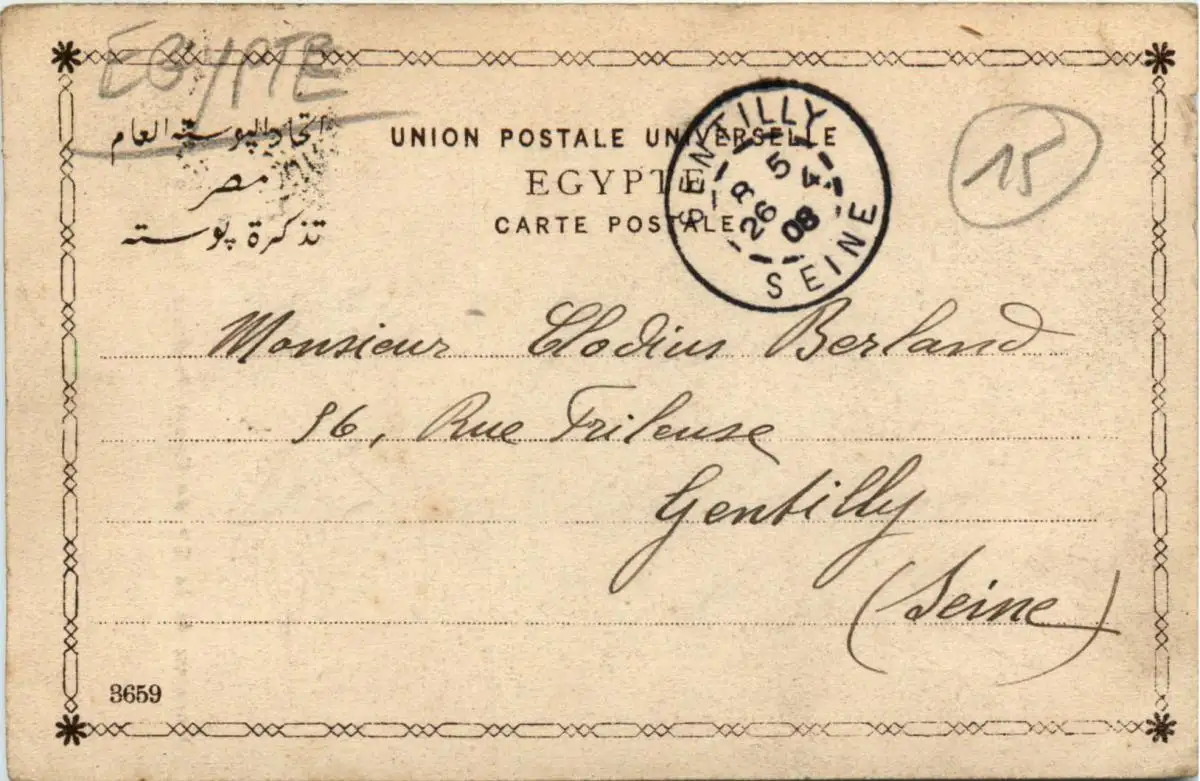 EGYPTE
اتحاد البوسته العام
مصر
تذكرة بوسته
UNION POSTALE UNIVERSELLE
EGYPTE
CARTE POSTALE
GENTILLY
8 5
26 4
08
SEINE
15
Monsieur Clodius Berland
96, Rue Frileuse
Gentilly
(Seine)
3659